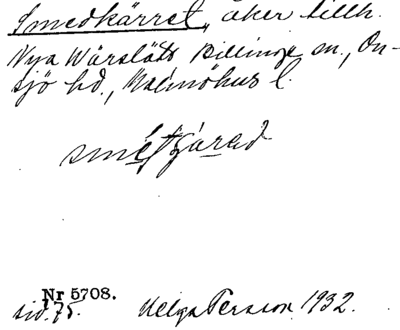 Smedkärret, åker tillh.
Nya Wärslätt Billinge sn., On-
sjö hd., Malmöhus l.
Nr 5708.
sid. 75. Helga Persson 1932.